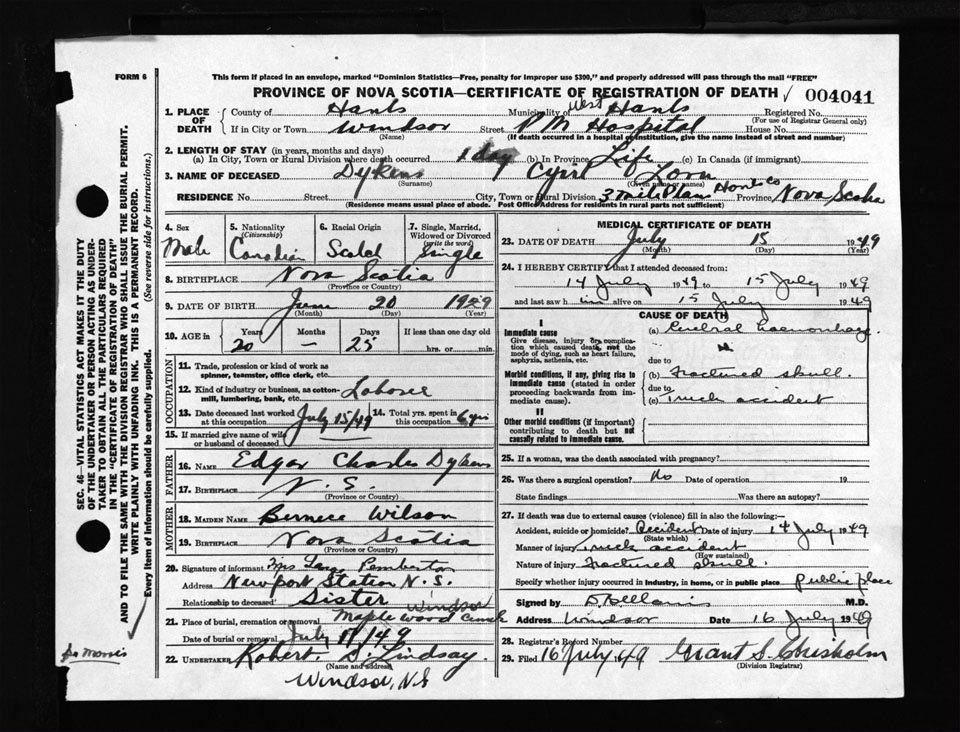 FORM 6
This form if placed in an envelope, marked "Dominion Statistics—Free, penalty for improper use $300," and properly addressed will pass through the mail "FREE"
PROVINCE OF NOVA SCOTIA—CERTIFICATE OF REGISTRATION OF DEATH ✓ 004041
1. PLACE OF DEATH
County of Hants Municipality of West Hants Registered No.
(For use of Registrar General only)
If in City or Town Windsor Street P.M. Hospital House No.
(Name) (If death occurred in a hospital or institution, give the name instead of street and number)
2. LENGTH OF STAY (in years, months and days)
(a) In City, Town or Rural Division where death occurred 1 day (b) In Province Life (c) In Canada (if immigrant)
3. NAME OF DECEASED Dykens Cyril Lorn
(Surname) (Given name or names)
RESIDENCE No. Street City, Town or Rural Division 3 mile Plain Hants Co Province Nova Scotia
(Residence means usual place of abode. Post Office Address for residents in rural parts not sufficient)
4. Sex Male
5. Nationality (Citizenship) Canadian
6. Racial Origin Scotch
7. Single, Married, Widowed or Divorced (write the word) Single
8. BIRTHPLACE Nova Scotia
(Province or Country)
9. DATE OF BIRTH June 20 1929
(Month) (Day) (Year)
10. AGE in Years Months Days If less than one day old
20 — 25 hrs. or min.
OCCUPATION
11. Trade, profession or kind of work as spinner, teamster, office clerk, etc.
12. Kind of industry or business, as cotton-mill, lumbering, bank, etc. Laborer
13. Date deceased last worked at this occupation July 15/49
14. Total yrs. spent in this occupation 6 yrs
15. If married give name of wife or husband of deceased
FATHER
16. NAME Edgar Charles Dykens
17. BIRTHPLACE N.S.
(Province or Country)
MOTHER
18. MAIDEN NAME Bernece Wilson
19. BIRTHPLACE Nova Scotia
(Province or Country)
20. Signature of informant Mrs Pemberton
Address Newport Station N.S.
Relationship to deceased Sister
21. Place of burial, cremation or removal Maplewood Windsor
Date of burial or removal July 17/49
22. UNDERTAKER Robert S. Lindsay.
(Name and address)
Windsor, N.S
MEDICAL CERTIFICATE OF DEATH
23. DATE OF DEATH July 15 1949
(Month) (Day) (Year)
24. I HEREBY CERTIFY that I attended deceased from:
14 July 1949 to 15 July 1949
and last saw him alive on 15 July 1949
CAUSE OF DEATH
I
Immediate cause
Give disease, injury or complication which caused death, not the mode of dying, such as heart failure, asphyxia, asthenia, etc.
(a) Cerebral haemorrhage
due to
Morbid conditions, if any, giving rise to immediate cause (stated in order proceeding backwards from immediate cause).
(b) Fractured skull.
due to
(c) Truck accident
II
Other morbid conditions (if important) contributing to death but not causally related to immediate cause.
25. If a woman, was the death associated with pregnancy?
26. Was there a surgical operation? No Date of operation 19
State findings Was there an autopsy?
27. If death was due to external causes (violence) fill in also the following:—
Accident, suicide or homicide? Accident Date of injury 14 July 1949
(State which)
Manner of injury Truck accident
(How sustained)
Nature of injury Fractured skull.
Specify whether injury occurred in industry, in home, or in public place public place
Signed by M.D.
Address Windsor Date 16 July 1949
28. Registrar's Record Number
29. Filed 16 July 49 Grant S. Chisholm
(Division Registrar)
SEC. 46—VITAL STATISTICS ACT MAKES IT THE DUTY
OF THE UNDERTAKER OR PERSON ACTING AS UNDER-
TAKER TO OBTAIN ALL THE PARTICULARS REQUIRED
IN THE "CERTIFICATE OF REGISTRATION OF DEATH"
AND TO FILE THE SAME WITH THE DIVISION REGISTRAR WHO SHALL ISSUE THE BURIAL PERMIT.
WRITE PLAINLY WITH UNFADING INK. THIS IS A PERMANENT RECORD.
Every item of information should be carefully supplied. (See reverse side for instructions.)